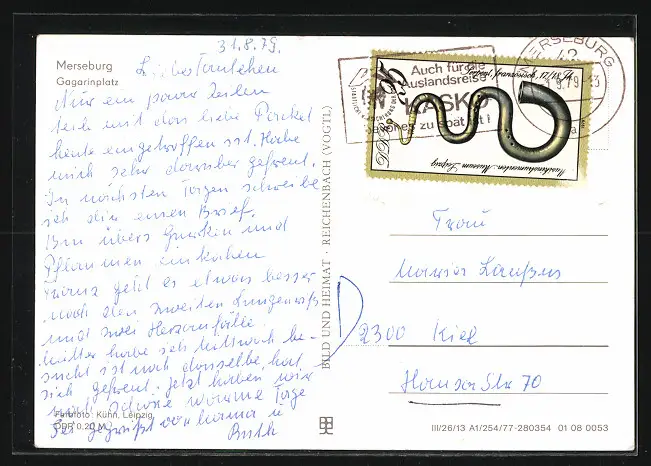 Merseburg
Gagarinplatz
31.8.79.
Liebes Tantchen
Nur ein paar Zeilen
daß das liebe Packet
heute eingetroffen ist. Habe
mich sehr darüber gefreut.
In nächsten Tagen schreibe
ich dir einen Brief.
Bin übers Gurken und
Pflaumen einkochen
Franz geht es etwas besser
nach den zweiten Lungenriß
und zwei Herzanfälle.
Mutter habe ich Mittwoch be-
sucht ist noch dasselbe, hat
sich gefreut. Jetzt haben wir
noch schöne warme Tage
Sei gegrüßt von Mama u
Ruth
Farbfoto: Kühn, Leipzig
DDR 0,20 M
BILD UND HEIMAT · REICHENBACH (VOGTL)
MERSEBURG
42
9.79-13
Auch für die
Auslandsreise
KASKO
zu spät ist!
Musikinstrumenten-Museum Leipzig
DDR
25
Frau
Maria
2300 Kiel
Hansa Str 70
III/26/13 A1/254/77-280354 01 08 0053